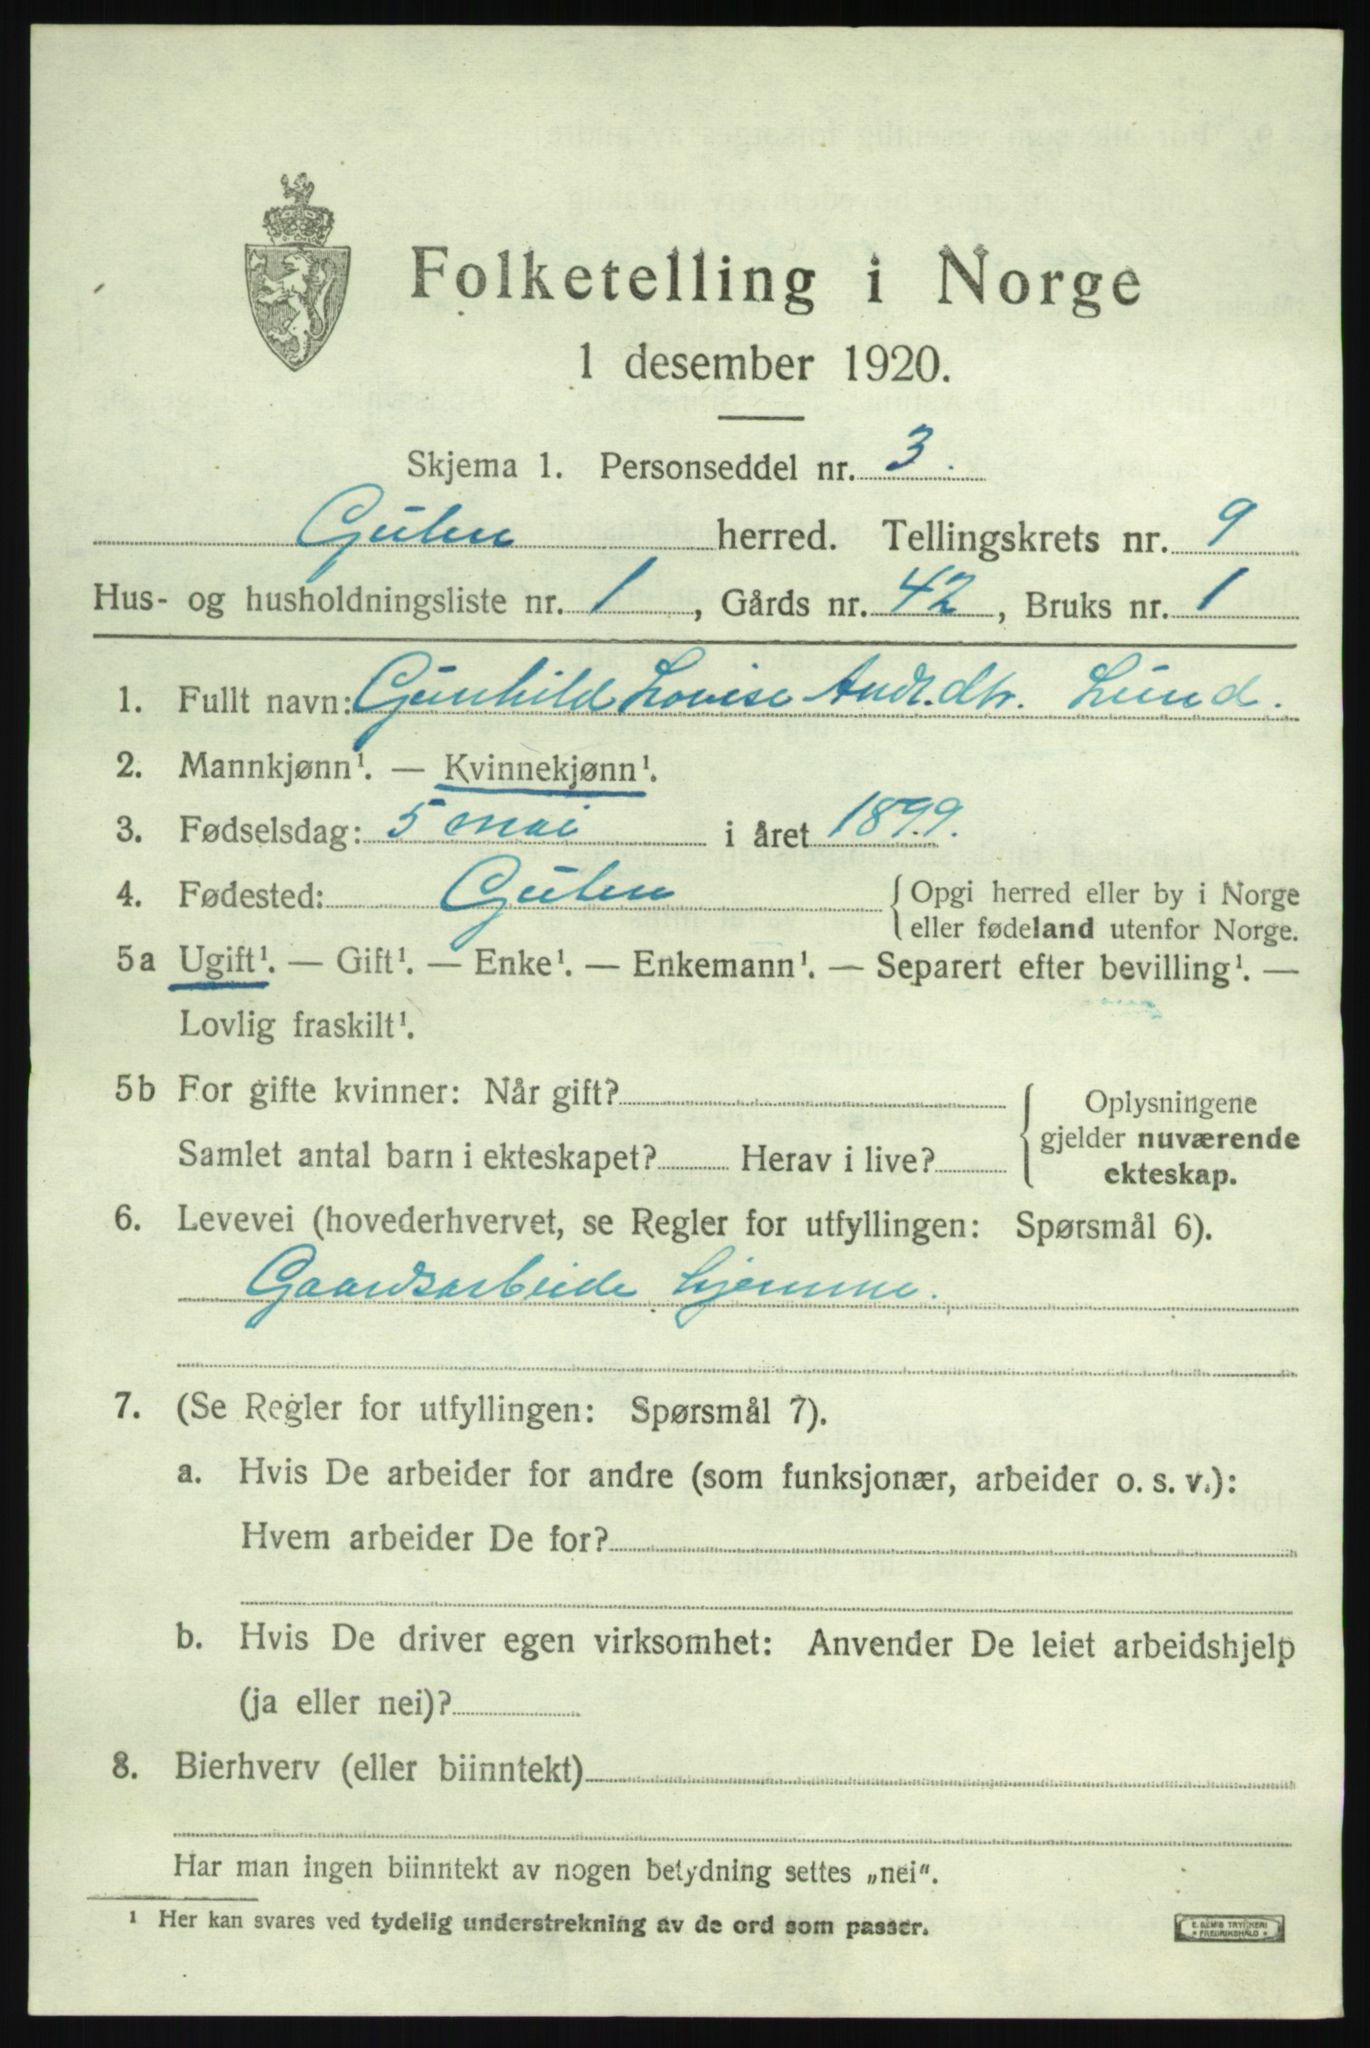 Folketelling i Norge
1 desember 1920.
Skjema 1. Personseddel nr. 3.
Gulen herred. Tellingskrets nr. 9
Hus- og husholdningsliste nr. 1, Gårds nr. 42, Bruks nr. 1
1. Fullt navn: Gunhild Lovise Andr.dtr. Lund.
2. Mannkjønn¹. — Kvinnekjønn¹.
3. Fødselsdag: 5 mai i året 1899.
4. Fødested: Gulen { Opgi herred eller by i Norge
eller fødeland utenfor Norge.
5a Ugift¹. — Gift¹. — Enke¹. — Enkemann¹. — Separert efter bevilling¹. —
Lovlig fraskilt¹.
5b For gifte kvinner: Når gift? { Oplysningene
gjelder nuværende
Samlet antal barn i ekteskapet? Herav i live? ekteskap.
6. Levevei (hovederhvervet, se Regler for utfyllingen: Spørsmål 6).
Gaardsarbeide hjemme.
7. (Se Regler for utfyllingen: Spørsmål 7).
a. Hvis De arbeider for andre (som funksjonær, arbeider o. s. v.):
Hvem arbeider De for?
b. Hvis De driver egen virksomhet: Anvender De leiet arbeidshjelp
(ja eller nei)?
8. Bierhverv (eller biinntekt)
Har man ingen biinntekt av nogen betydning settes „nei".
¹ Her kan svares ved tydelig understrekning av de ord som passer.
E. SEM'S TRYKKERI
* FREDRIKSHALD *